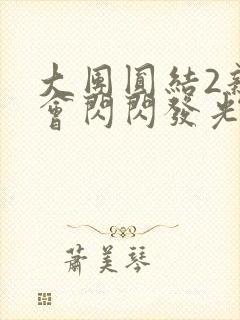 大團圓結2新
會閃閃發光
蕭美琴